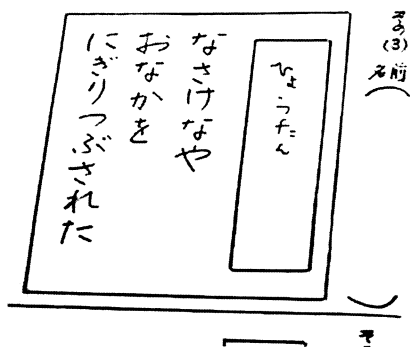 その(3)
名前(　)
ひょうたん
なさけなや
おなかを
にぎりつぶされた